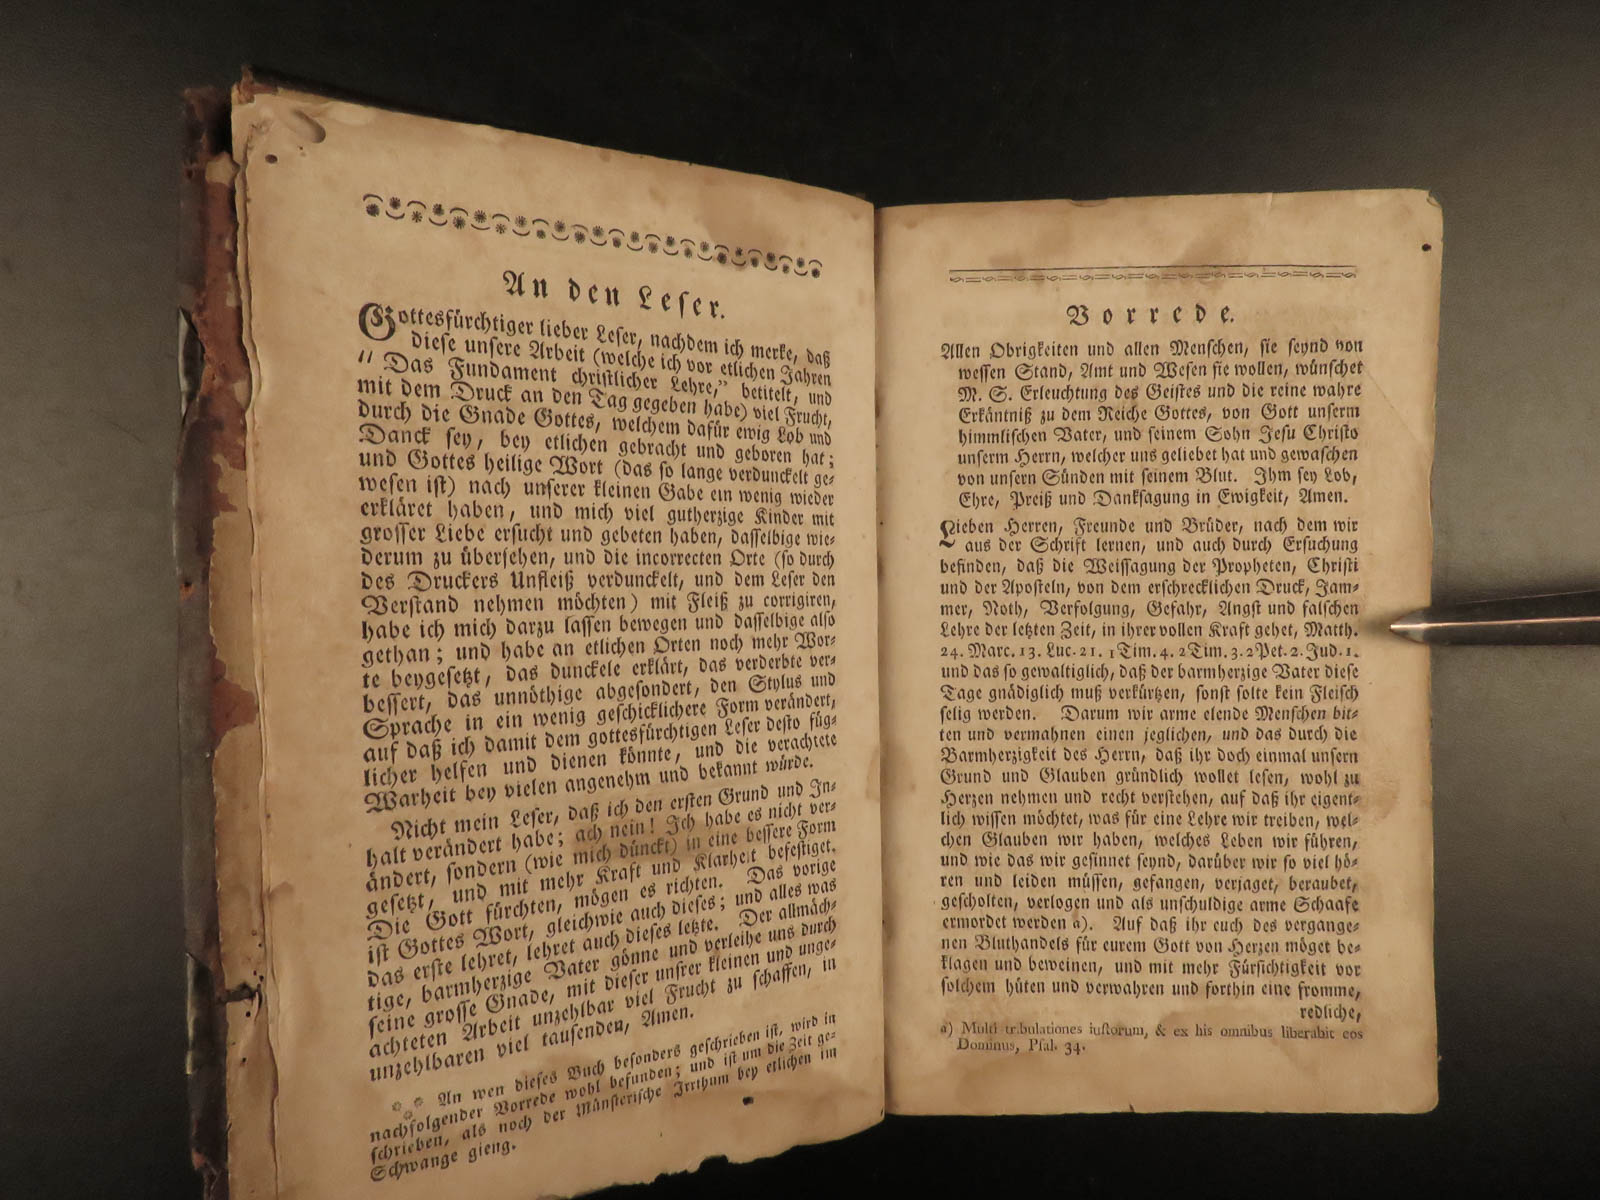 An den Leser.
Gottesfürchtiger lieber Leser, nachdem ich merke, daß
diese unsere Arbeit (welche ich vor etlichen Jahren
"Das Fundament christlicher Lehre," betitelt, und
mit dem Druck an den Tag gegeben habe) viel Frucht,
durch die Gnade Gottes, welchem dafür ewig Lob und
Danck sey, bey etlichen gebracht und geboren hat;
und Gottes heilige Wort (das so lange verdunckelt ge-
wesen ist) nach unserer kleinen Gabe ein wenig wieder
erkläret haben, und mich viel gutherzige Kinder mit
grosser Liebe ersucht und gebeten haben, dasselbige wie-
derum zu übersehen, und die incorrecten Orte (so durch
des Druckers Unfleiß verdunckelt, und dem Leser den
Verstand nehmen möchten) mit Fleiß zu corrigiren,
habe ich mich darzu lassen bewegen und dasselbige also
gethan; und habe an etlichen Orten noch mehr Wor-
te beygesetzt, das dunckele erklärt, das verderbte ver-
bessert, das unnöthige abgesondert, den Stylus und
Sprache in ein wenig geschicklichere Form verändert,
auf daß ich damit dem gottesfürchtigen Leser desto füg-
licher helfen und dienen könnte, und die verachtete
Warheit bey vielen angenehm und bekannt würde.
Nicht mein Leser, daß ich den ersten Grund und In-
halt verändert habe; ach nein! Ich habe es nicht ver-
ändert, sondern (wie mich dünckt) in eine bessere Form
gesetzt, und mit mehr Kraft und Klarheit befestiget.
Die Gott fürchten, mögen es richten. Das vorige
ist Gottes Wort, gleichwie auch dieses; und alles was
das erste lehret, lehret auch dieses letzte. Der allmäch-
tige, barmherzige Vater gönne und verleihe uns durch
seine grosse Gnade, mit dieser unsrer kleinen und unge-
achteten Arbeit unzehlbar viel Frucht zu schaffen, in
unzehlbaren viel tausenden, Amen.
** An wen dieses Buch besonders geschrieben ist, wird in
nachfolgender Vorrede wohl befunden; und ist um die Zeit ge-
schrieben, als noch der Münsterische Irrthum bey etlichen im
Schwange gieng.
Vorrede.
Allen Obrigkeiten und allen Menschen, sie seynd von
wessen Stand, Amt und Wesen sie wollen, wünschet
M. S. Erleuchtung des Geistes und die reine wahre
Erkäntniß zu dem Reiche Gottes, von Gott unserm
himmlischen Vater, und seinem Sohn Jesu Christo
unserm Herrn, welcher uns geliebet hat und gewaschen
von unsern Sünden mit seinem Blut. Ihm sey Lob,
Ehre, Preiß und Danksagung in Ewigkeit, Amen.
Lieben Herren, Freunde und Brüder, nach dem wir
aus der Schrift lernen, und auch durch Ersuchung
befinden, daß die Weissagung der Propheten, Christi
und der Aposteln, von dem erschrecklichen Druck, Jam-
mer, Noth, Verfolgung, Gefahr, Angst und falschen
Lehre der letzten Zeit, in ihrer vollen Kraft gehet, Matth.
24. Marc. 13. Luc. 21. 1 Tim. 4. 2 Tim. 3. 2 Pet. 2. Jud. 1.
und das so gewaltiglich, daß der barmherzige Vater diese
Tage gnädiglich muß verkürtzen, sonst solte kein Fleisch
selig werden. Darum wir arme elende Menschen bit-
ten und vermahnen einen jeglichen, und das durch die
Barmherzigkeit des Herrn, daß ihr doch einmal unsern
Grund und Glauben gründlich wollet lesen, wohl zu
Herzen nehmen und recht verstehen, auf daß ihr eigent-
lich wissen möchtet, was für eine Lehre wir treiben, wel-
chen Glauben wir haben, welches Leben wir führen,
und wie das wir gesinnet seynd, darüber wir so viel hö-
ren und leiden müssen, gefangen, verjaget, beraubet,
gescholten, verlogen und als unschuldige arme Schaafe
ermordet werden a). Auf daß ihr euch des vergange-
nen Bluthandels für eurem Gott von Herzen möget be-
klagen und beweinen, und mit mehr Fürsichtigkeit vor
solchem hüten und verwahren und forthin eine fromme,
redliche,
a) Multi tribulationes iustorum, & ex his omnibus liberabit eos
Dominus, Psal. 34.